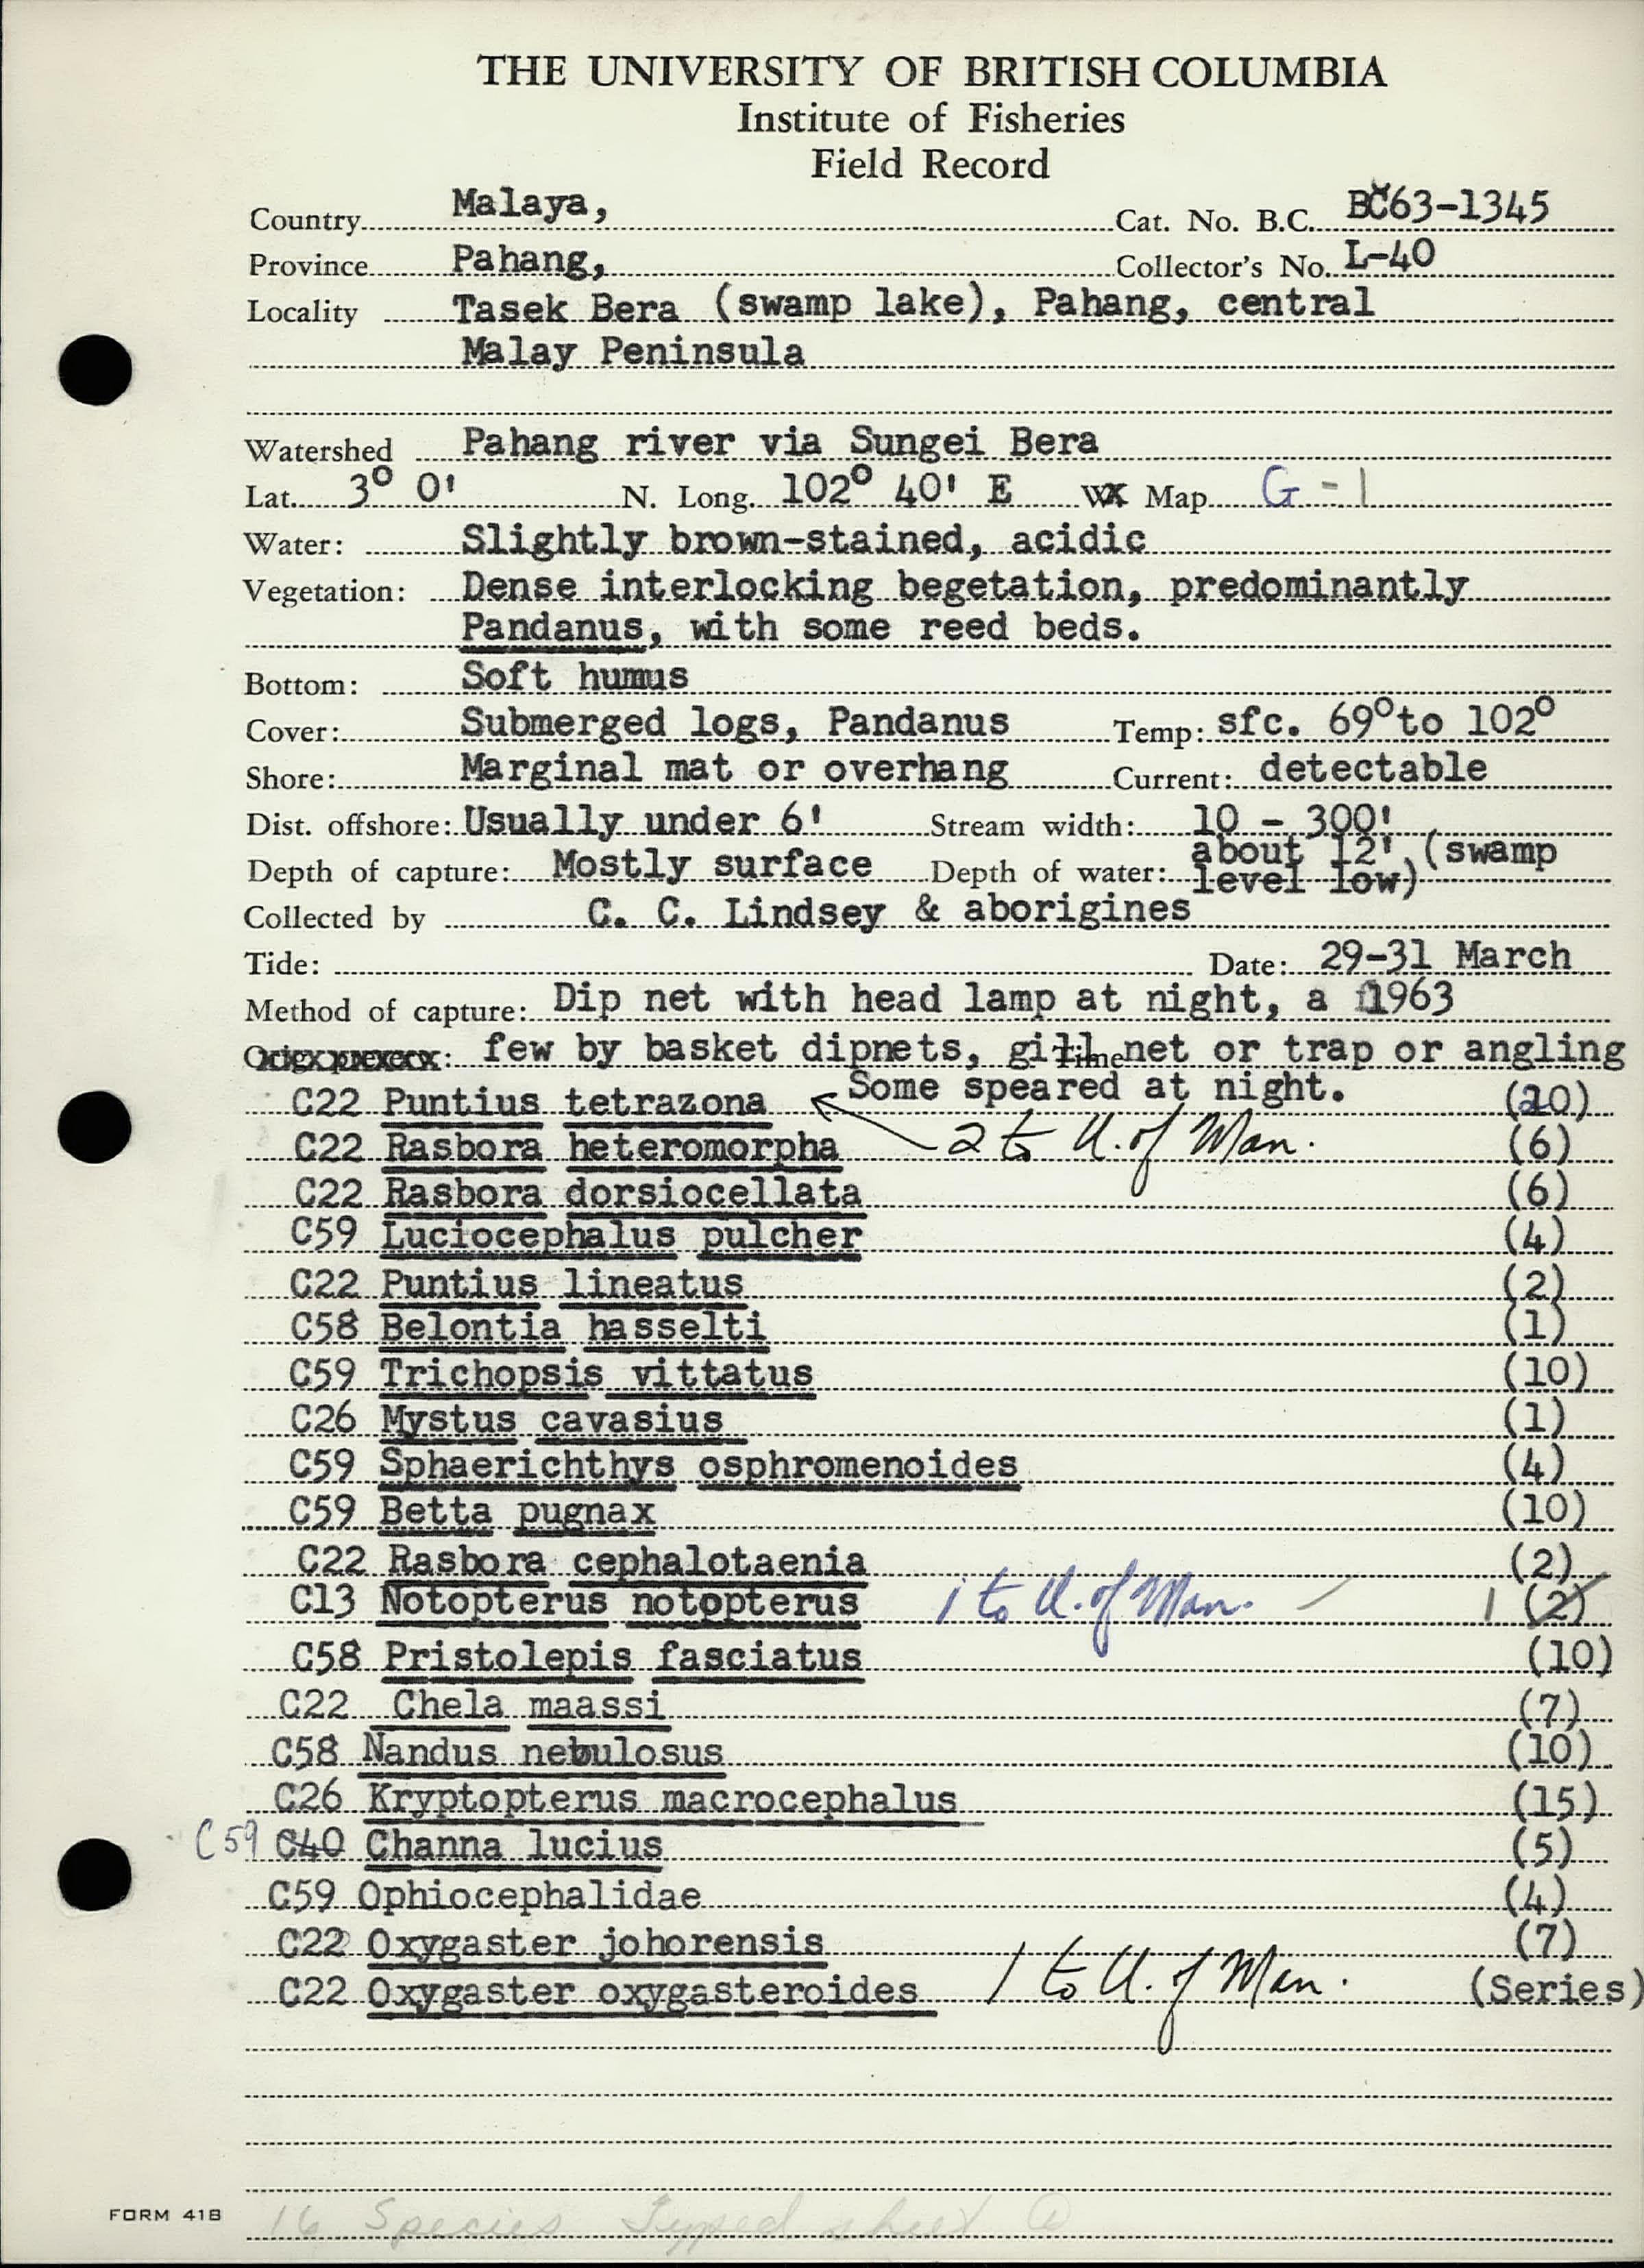 THE UNIVERSITY OF BRITISH COLUMBIA
Institute of Fisheries
Field Record
Country Malaya, Cat. No. B.C. BC63-1345
Province Pahang, Collector's No. L-40
Locality Tasek Bera (swamp lake), Pahang, central
Malay Peninsula
Watershed Pahang river via Sungei Bera
Lat. 3° 0' N. Long. 102° 40' E W Map G-1
Water: Slightly brown-stained, acidic
Vegetation: Dense interlocking begetation, predominantly
Pandanus, with some reed beds.
Bottom: Soft humus
Cover: Submerged logs, Pandanus Temp: sfc. 69° to 102°
Shore: Marginal mat or overhang Current: detectable
Dist. offshore: Usually under 6' Stream width: 10 - 300'
Depth of capture: Mostly surface Depth of water: about 12' (swamp level low)
Collected by C. C. Lindsey & aborigines
Tide: Date: 29-31 March
Method of capture: Dip net with head lamp at night, a 1963
few by basket dipnets, gill net or trap or angling
Some speared at night.
C22 Puntius tetrazona (20)
2 to U. of Man.
C22 Rasbora heteromorpha (6)
C22 Rasbora dorsiocellata (6)
C59 Luciocephalus pulcher (4)
C22 Puntius lineatus (2)
C58 Belontia hasselti (1)
C59 Trichopsis vittatus (10)
C26 Mystus cavasius (1)
C59 Sphaerichthys osphromenoides (4)
C59 Betta pugnax (10)
C22 Rasbora cephalotaenia (2)
C13 Notopterus notopterus 1 to U. of Man. 1 (2)
C58 Pristolepis fasciatus (10)
C22 Chela maassi (7)
C58 Nandus nebulosus (10)
C26 Kryptopterus macrocephalus (15)
C59 C40 Channa lucius (5)
C59 Ophiocephalidae (4)
C22 Oxygaster johorensis (7)
C22 Oxygaster oxygasteroides 1 to U. of Man. (Series)
FORM 41B
16 Species Typed sheet